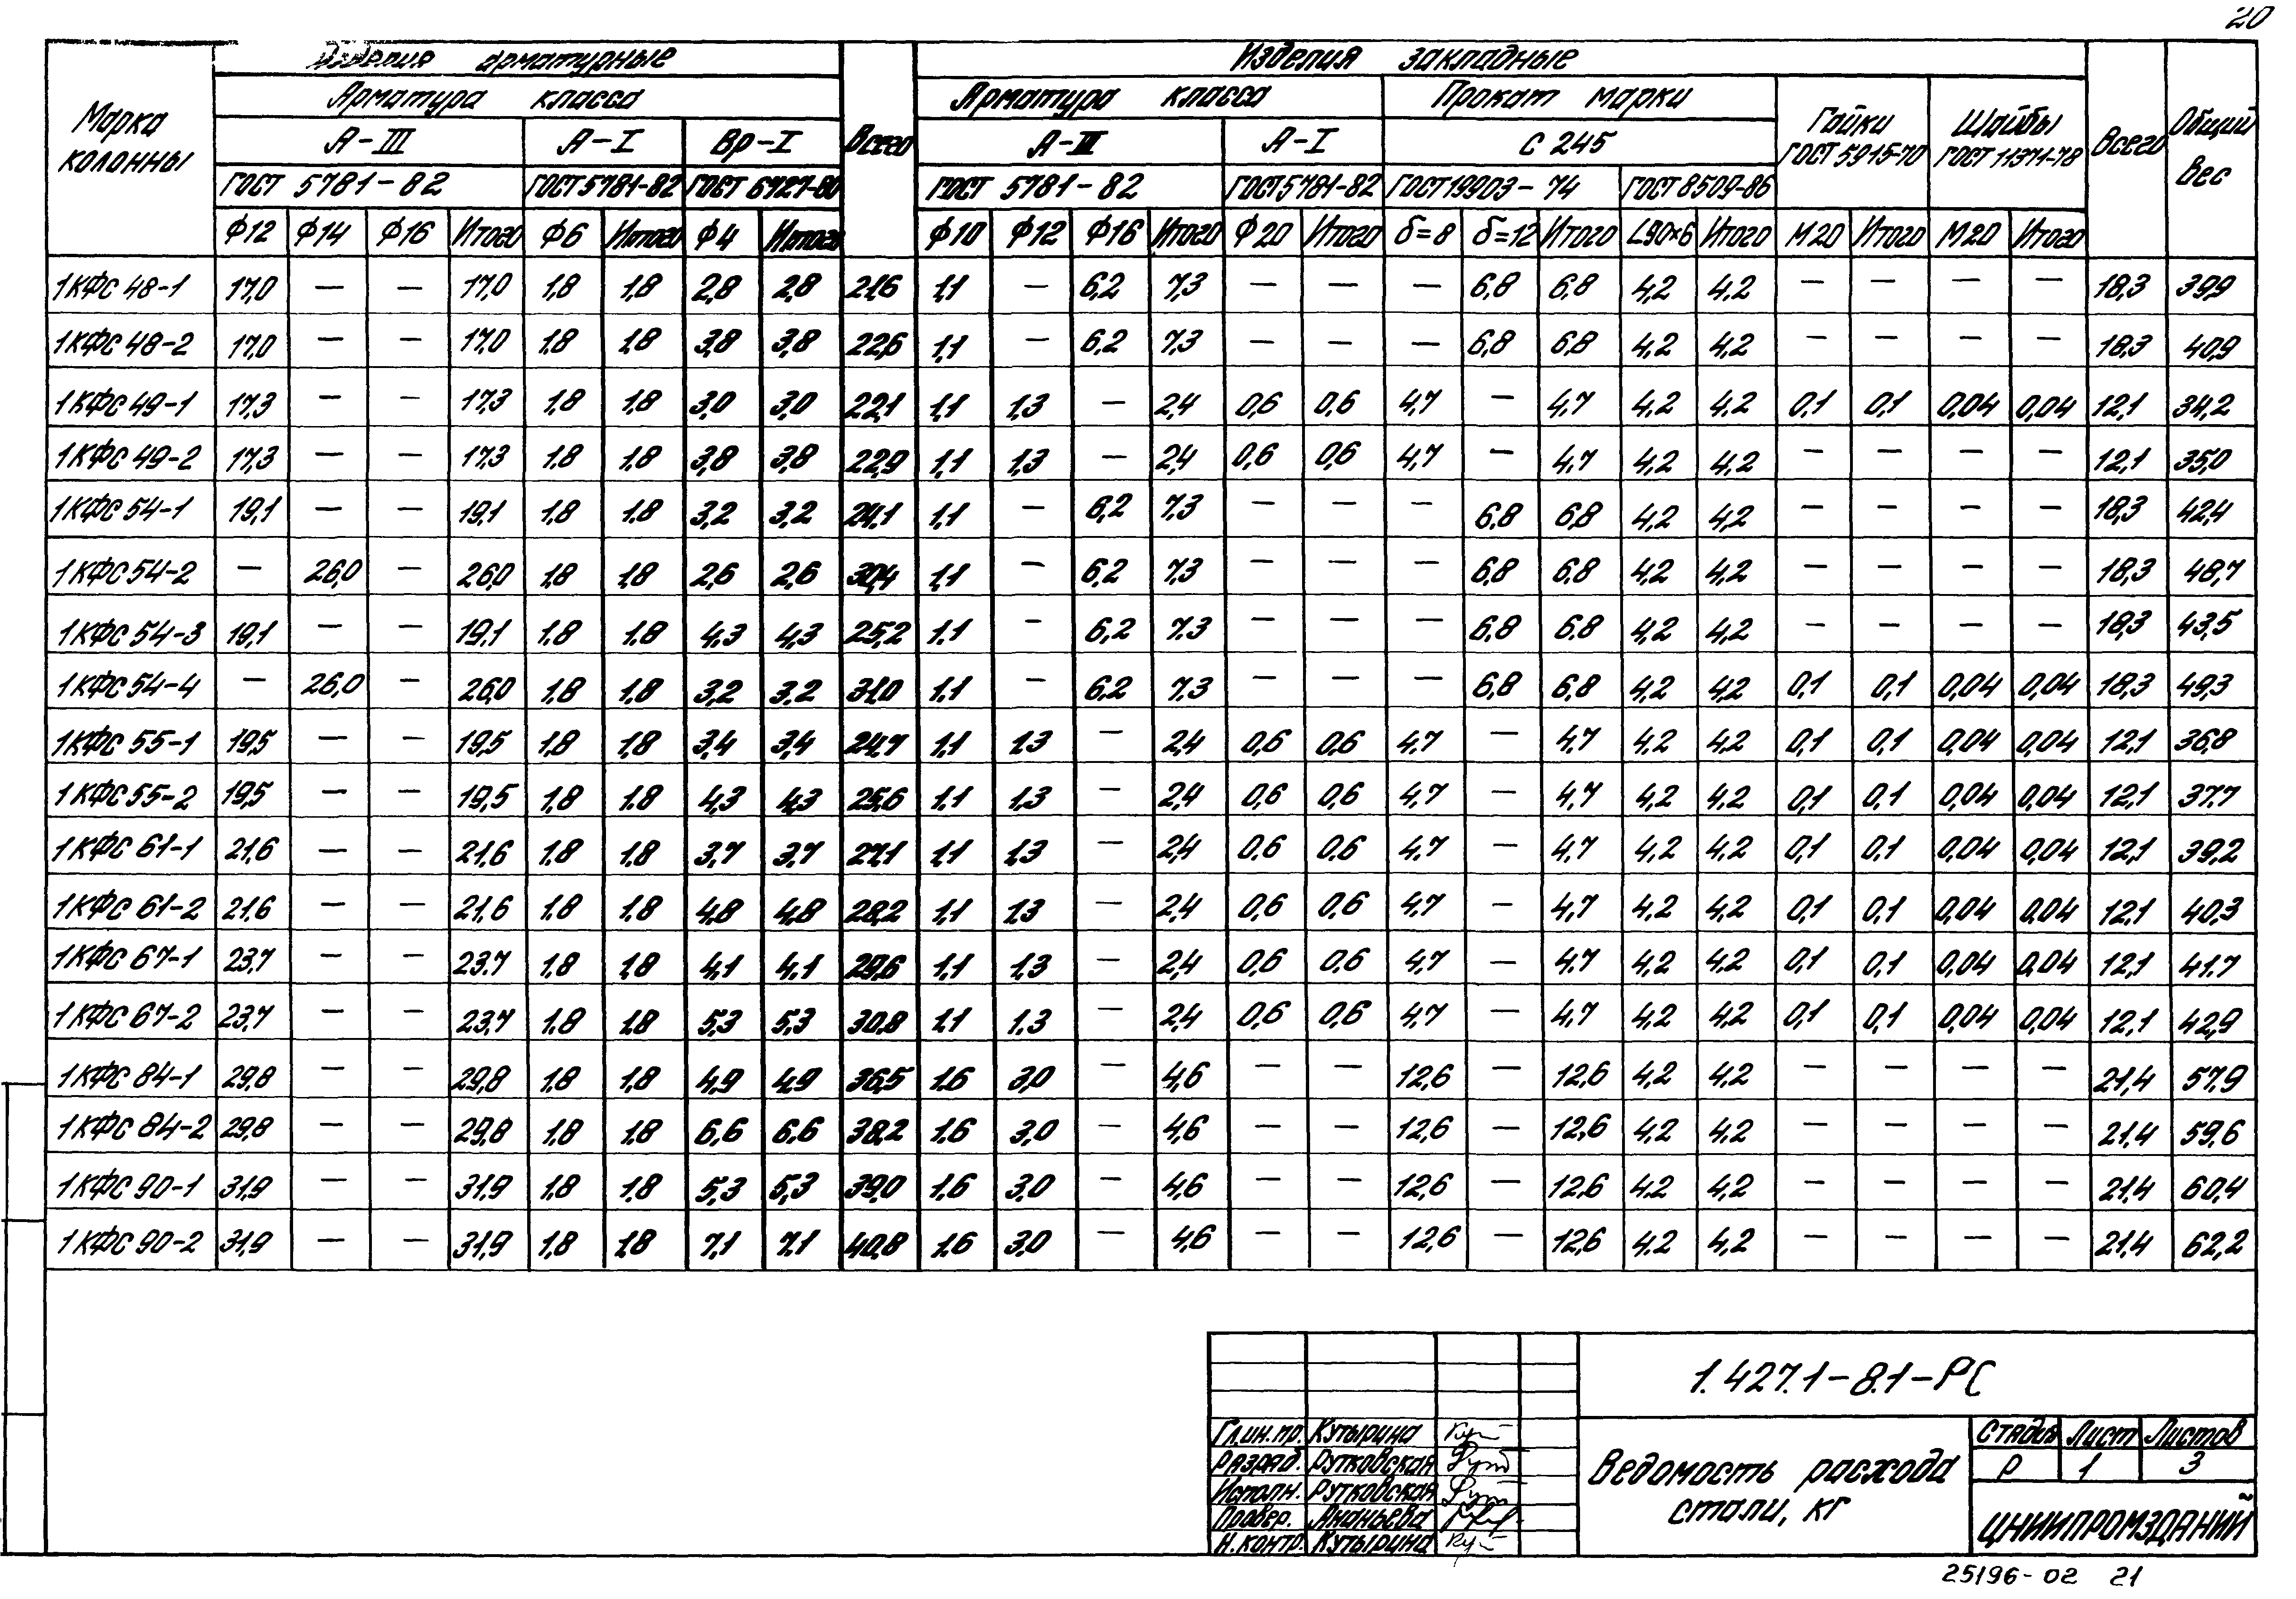 20
Изделия арматурные
Изделия закладные
Марка колонны
Арматура класса
Всего
Арматура класса
Прокат марки
Гайки ГОСТ 5915-70
Шайбы ГОСТ 11371-78
Всего
Общий вес
А-III А-I Вр-I А-III А-I С 245
ГОСТ 5781-82 ГОСТ 5781-82 ГОСТ 6727-80 ГОСТ 5781-82 ГОСТ 5781-82 ГОСТ 19903-74 ГОСТ 8509-86
Ф12 Ф14 Ф16 Итого Ф6 Итого Ф4 Итого Ф10 Ф12 Ф16 Итого Ф20 Итого δ=8 δ=12 Итого L90×6 Итого М20 Итого М20 Итого
1КФС 48-1 17,0 — — 17,0 1,8 1,8 2,8 2,8 21,6 1,1 — 6,2 7,3 — — — 6,8 6,8 4,2 4,2 — — — — 18,3 39,9
1КФС 48-2 17,0 — — 17,0 1,8 1,8 3,8 3,8 22,6 1,1 — 6,2 7,3 — — — 6,8 6,8 4,2 4,2 — — — — 18,3 40,9
1КФС 49-1 17,3 — — 17,3 1,8 1,8 3,0 3,0 22,1 1,1 1,3 — 2,4 0,6 0,6 4,7 — 4,7 4,2 4,2 0,1 0,1 0,04 0,04 12,1 34,2
1КФС 49-2 17,3 — — 17,3 1,8 1,8 3,8 3,8 22,9 1,1 1,3 — 2,4 0,6 0,6 4,7 — 4,7 4,2 4,2 — — — — 12,1 35,0
1КФС 54-1 19,1 — — 19,1 1,8 1,8 3,2 3,2 24,1 1,1 — 6,2 7,3 — — — 6,8 6,8 4,2 4,2 — — — — 18,3 42,4
1КФС 54-2 — 26,0 — 26,0 1,8 1,8 2,6 2,6 30,4 1,1 — 6,2 7,3 — — — 6,8 6,8 4,2 4,2 — — — — 18,3 48,7
1КФС 54-3 19,1 — — 19,1 1,8 1,8 4,3 4,3 25,2 1,1 — 6,2 7,3 — — — 6,8 6,8 4,2 4,2 — — — — 18,3 43,5
1КФС 54-4 — 26,0 — 26,0 1,8 1,8 3,2 3,2 31,0 1,1 — 6,2 7,3 — — — 6,8 6,8 4,2 4,2 0,1 0,1 0,04 0,04 18,3 49,3
1КФС 55-1 19,5 — — 19,5 1,8 1,8 3,4 3,4 24,7 1,1 1,3 — 2,4 0,6 0,6 4,7 — 4,7 4,2 4,2 0,1 0,1 0,04 0,04 12,1 36,8
1КФС 55-2 19,5 — — 19,5 1,8 1,8 4,3 4,3 25,6 1,1 1,3 — 2,4 0,6 0,6 4,7 — 4,7 4,2 4,2 0,1 0,1 0,04 0,04 12,1 37,7
1КФС 61-1 21,6 — — 21,6 1,8 1,8 3,7 3,7 27,1 1,1 1,3 — 2,4 0,6 0,6 4,7 — 4,7 4,2 4,2 0,1 0,1 0,04 0,04 12,1 39,2
1КФС 61-2 21,6 — — 21,6 1,8 1,8 4,8 4,8 28,2 1,1 1,3 — 2,4 0,6 0,6 4,7 — 4,7 4,2 4,2 0,1 0,1 0,04 0,04 12,1 40,3
1КФС 67-1 23,7 — — 23,7 1,8 1,8 4,1 4,1 29,6 1,1 1,3 — 2,4 0,6 0,6 4,7 — 4,7 4,2 4,2 0,1 0,1 0,04 0,04 12,1 41,7
1КФС 67-2 23,7 — — 23,7 1,8 1,8 5,3 5,3 30,8 1,1 1,3 — 2,4 0,6 0,6 4,7 — 4,7 4,2 4,2 0,1 0,1 0,04 0,04 12,1 42,9
1КФС 84-1 29,8 — — 29,8 1,8 1,8 4,9 4,9 36,5 1,6 3,0 — 4,6 — — 12,6 — 12,6 4,2 4,2 — — — — 21,4 57,9
1КФС 84-2 29,8 — — 29,8 1,8 1,8 6,6 6,6 38,2 1,6 3,0 — 4,6 — — 12,6 — 12,6 4,2 4,2 — — — — 21,4 59,6
1КФС 90-1 31,9 — — 31,9 1,8 1,8 5,3 5,3 39,0 1,6 3,0 — 4,6 — — 12,6 — 12,6 4,2 4,2 — — — — 21,4 60,4
1КФС 90-2 31,9 — — 31,9 1,8 1,8 7,1 7,1 40,8 1,6 3,0 — 4,6 — — 12,6 — 12,6 4,2 4,2 — — — — 21,4 62,2
1.427.1-8.1-РС
Гл.ин.пр. Кутырина
Разраб. Рутковская
Исполн. Рутковская
Провер. Ананьева
Н.контр. Кутырина
Ведомость расхода
стали, кг
Стадия Лист Листов
Р 1 3
ЦНИИПРОМЗДАНИЙ
25196-02 21